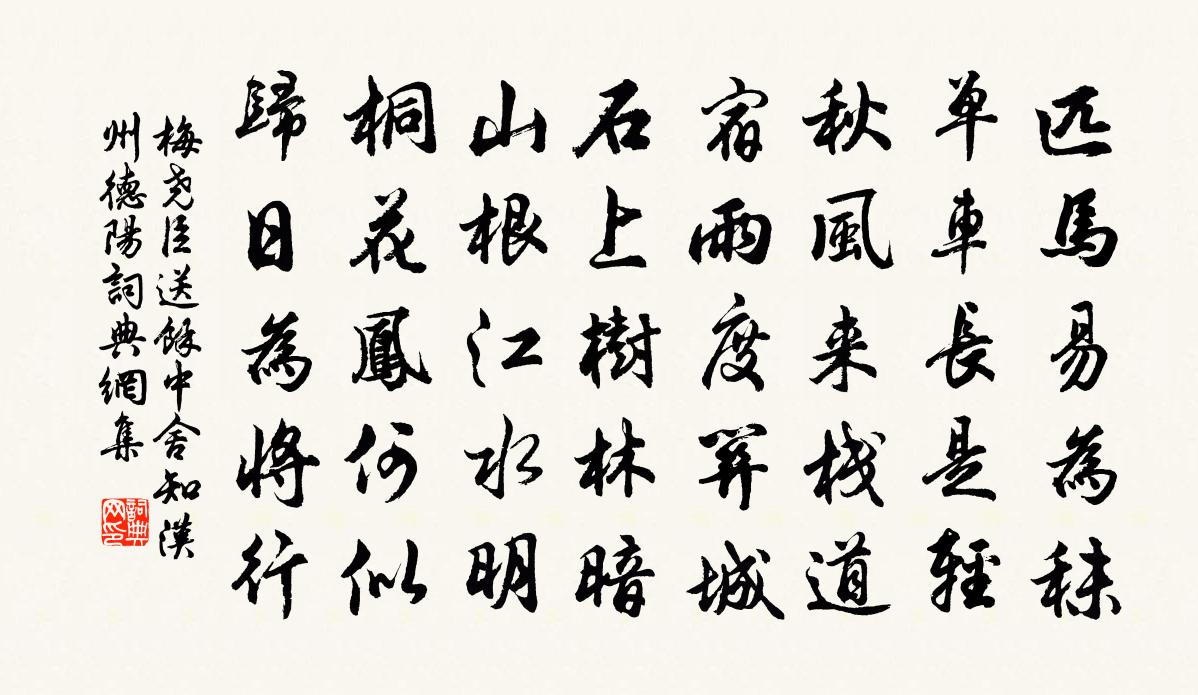 匹馬易為秣
單車長是輕
秋風来棧道
宿雨度笄城
石上樹林暗
山根江水明
桐花鳳何似
歸日為將行
梅尧臣送餘中舍知漢
州德陽詞典網集
詞典
网印